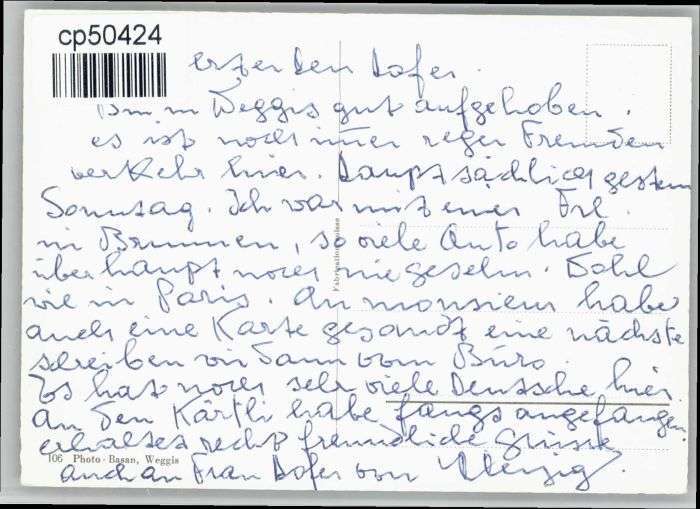 cp50424
Bin in Weggis gut aufgehoben.
es ist noch immer reger Fremden
verkehr hier. Hauptsächlich gestern
Sonntag. Ich war mit einer Frl.
in Brunnen, so viele Auto habe
überhaupt noch nie gesehn. Wohl
wie in Paris. An monsieur habe
auch eine Karte gesandt eine nächste
schreiben wir dann vom Büro.
Es hat noch sehr viele Deutsche hier.
An den Kärtli habe angefangen
erhaltet recht freundliche Grüsse
106 Photo-Basan, Weggis
auch an Frau Hofer von
Fabrication suisse